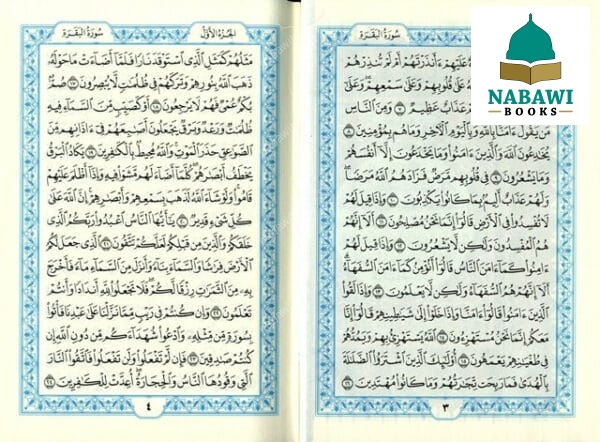 سُورَةُ البَقَرَة
عَلَيْهِمْ ءَأَنذَرْتَهُمْ أَمْ لَمْ تُنذِرْهُمْ
عَلَىٰ قُلُوبِهِمْ وَعَلَىٰ سَمْعِهِمْ وَعَلَىٰ
عَذَابٌ عَظِيمٌ ٧ وَمِنَ ٱلنَّاسِ
مَن يَقُولُ ءَامَنَّا بِٱللَّهِ وَبِٱلْيَوْمِ ٱلْءَاخِرِ وَمَا هُم بِمُؤْمِنِينَ ٨
يُخَٰدِعُونَ ٱللَّهَ وَٱلَّذِينَ ءَامَنُوا۟ وَمَا يَخْدَعُونَ إِلَّآ أَنفُسَهُمْ
وَمَا يَشْعُرُونَ ٩ فِى قُلُوبِهِم مَّرَضٌ فَزَادَهُمُ ٱللَّهُ مَرَضًا
وَلَهُمْ عَذَابٌ أَلِيمٌۢ بِمَا كَانُوا۟ يَكْذِبُونَ ١٠ وَإِذَا قِيلَ لَهُمْ
لَا تُفْسِدُوا۟ فِى ٱلْأَرْضِ قَالُوٓا۟ إِنَّمَا نَحْنُ مُصْلِحُونَ ١١ أَلَآ إِنَّهُمْ
هُمُ ٱلْمُفْسِدُونَ وَلَٰكِن لَّا يَشْعُرُونَ ١٢ وَإِذَا قِيلَ لَهُمْ
ءَامِنُوا۟ كَمَآ ءَامَنَ ٱلنَّاسُ قَالُوٓا۟ أَنُؤْمِنُ كَمَآ ءَامَنَ ٱلسُّفَهَآءُ ۗ
أَلَآ إِنَّهُمْ هُمُ ٱلسُّفَهَآءُ وَلَٰكِن لَّا يَعْلَمُونَ ١٣ وَإِذَا لَقُوا۟
ٱلَّذِينَ ءَامَنُوا۟ قَالُوٓا۟ ءَامَنَّا وَإِذَا خَلَوْا۟ إِلَىٰ شَيَٰطِينِهِمْ قَالُوٓا۟ إِنَّا
مَعَكُمْ إِنَّمَا نَحْنُ مُسْتَهْزِءُونَ ١٤ ٱللَّهُ يَسْتَهْزِئُ بِهِمْ وَيَمُدُّهُمْ
فِى طُغْيَٰنِهِمْ يَعْمَهُونَ ١٥ أُو۟لَٰٓئِكَ ٱلَّذِينَ ٱشْتَرَوُا۟ ٱلضَّلَٰلَةَ
بِٱلْهُدَىٰ فَمَا رَبِحَت تِّجَٰرَتُهُمْ وَمَا كَانُوا۟ مُهْتَدِينَ ١٦
٣
NABAWI
BOOKS
الجُزءُ الأَوَّلُ
سُورَةُ البَقَرَة
مَثَلُهُمْ كَمَثَلِ ٱلَّذِى ٱسْتَوْقَدَ نَارًا فَلَمَّآ أَضَآءَتْ مَا حَوْلَهُۥ
ذَهَبَ ٱللَّهُ بِنُورِهِمْ وَتَرَكَهُمْ فِى ظُلُمَٰتٍ لَّا يُبْصِرُونَ ١٧ صُمٌّۢ
بُكْمٌ عُمْىٌ فَهُمْ لَا يَرْجِعُونَ ١٨ أَوْ كَصَيِّبٍ مِّنَ ٱلسَّمَآءِ فِيهِ
ظُلُمَٰتٌ وَرَعْدٌ وَبَرْقٌ يَجْعَلُونَ أَصَٰبِعَهُمْ فِىٓ ءَاذَانِهِم مِّنَ
ٱلصَّوَٰعِقِ حَذَرَ ٱلْمَوْتِ ۚ وَٱللَّهُ مُحِيطٌۢ بِٱلْكَٰفِرِينَ ١٩ يَكَادُ ٱلْبَرْقُ
يَخْطَفُ أَبْصَٰرَهُمْ ۖ كُلَّمَآ أَضَآءَ لَهُم مَّشَوْا۟ فِيهِ وَإِذَآ أَظْلَمَ عَلَيْهِمْ
قَامُوا۟ ۚ وَلَوْ شَآءَ ٱللَّهُ لَذَهَبَ بِسَمْعِهِمْ وَأَبْصَٰرِهِمْ ۚ إِنَّ ٱللَّهَ عَلَىٰ
كُلِّ شَىْءٍ قَدِيرٌ ٢٠ يَٰٓأَيُّهَا ٱلنَّاسُ ٱعْبُدُوا۟ رَبَّكُمُ ٱلَّذِى
خَلَقَكُمْ وَٱلَّذِينَ مِن قَبْلِكُمْ لَعَلَّكُمْ تَتَّقُونَ ٢١ ٱلَّذِى جَعَلَ لَكُمُ
ٱلْأَرْضَ فِرَٰشًا وَٱلسَّمَآءَ بِنَآءً وَأَنزَلَ مِنَ ٱلسَّمَآءِ مَآءً فَأَخْرَجَ
بِهِۦ مِنَ ٱلثَّمَرَٰتِ رِزْقًا لَّكُمْ ۖ فَلَا تَجْعَلُوا۟ لِلَّهِ أَندَادًا وَأَنتُمْ
تَعْلَمُونَ ٢٢ وَإِن كُنتُمْ فِى رَيْبٍ مِّمَّا نَزَّلْنَا عَلَىٰ عَبْدِنَا فَأْتُوا۟
بِسُورَةٍ مِّن مِّثْلِهِۦ وَٱدْعُوا۟ شُهَدَآءَكُم مِّن دُونِ ٱللَّهِ إِن
كُنتُمْ صَٰدِقِينَ ٢٣ فَإِن لَّمْ تَفْعَلُوا۟ وَلَن تَفْعَلُوا۟ فَٱتَّقُوا۟ ٱلنَّارَ
ٱلَّتِى وَقُودُهَا ٱلنَّاسُ وَٱلْحِجَارَةُ ۖ أُعِدَّتْ لِلْكَٰفِرِينَ ٢٤
٤